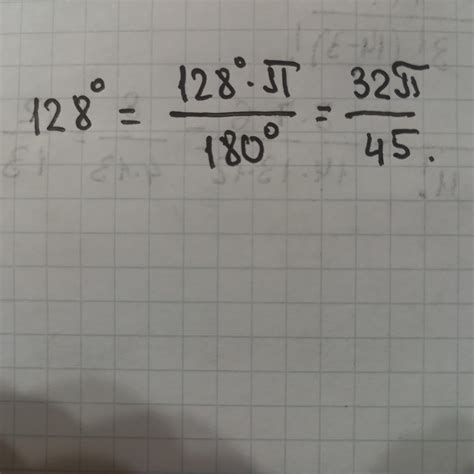 128° = 128° · π / 180° = 32π / 45.